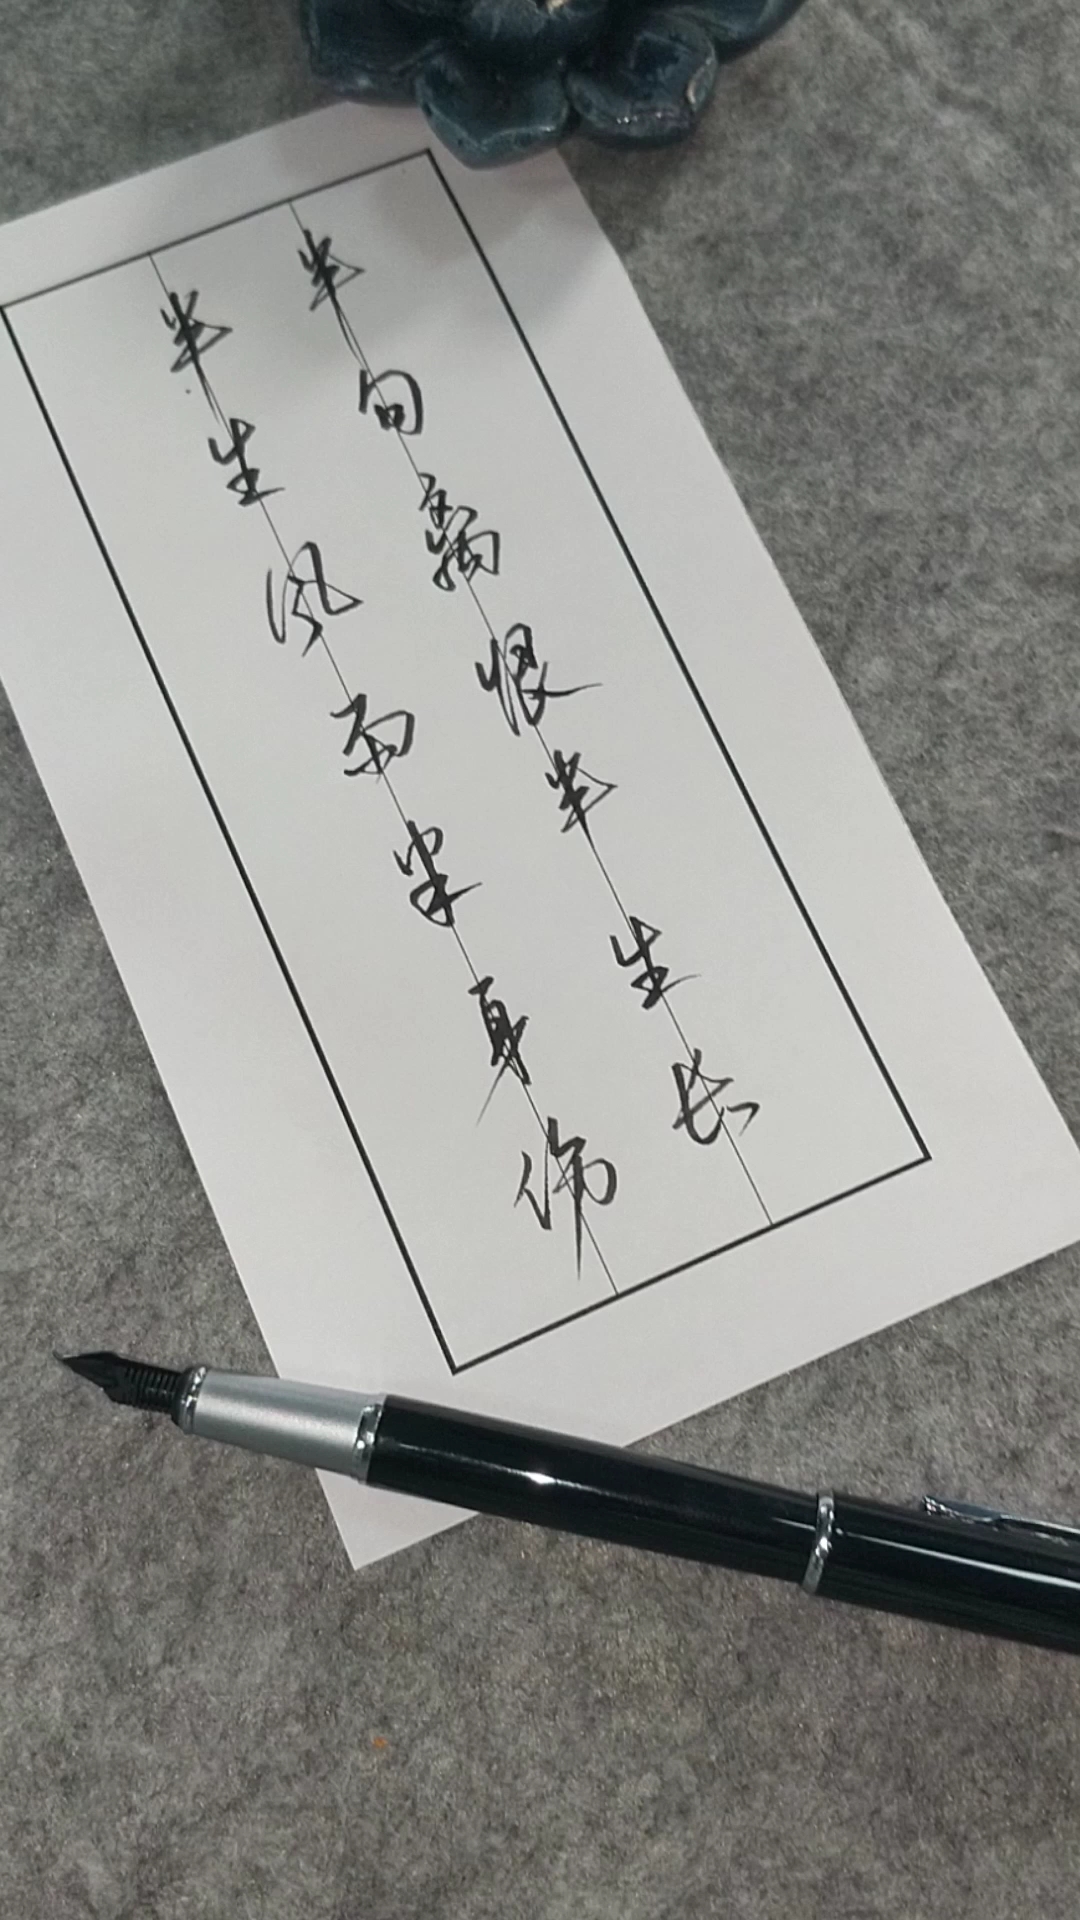 半句离恨半生长
半生风雨半身伤